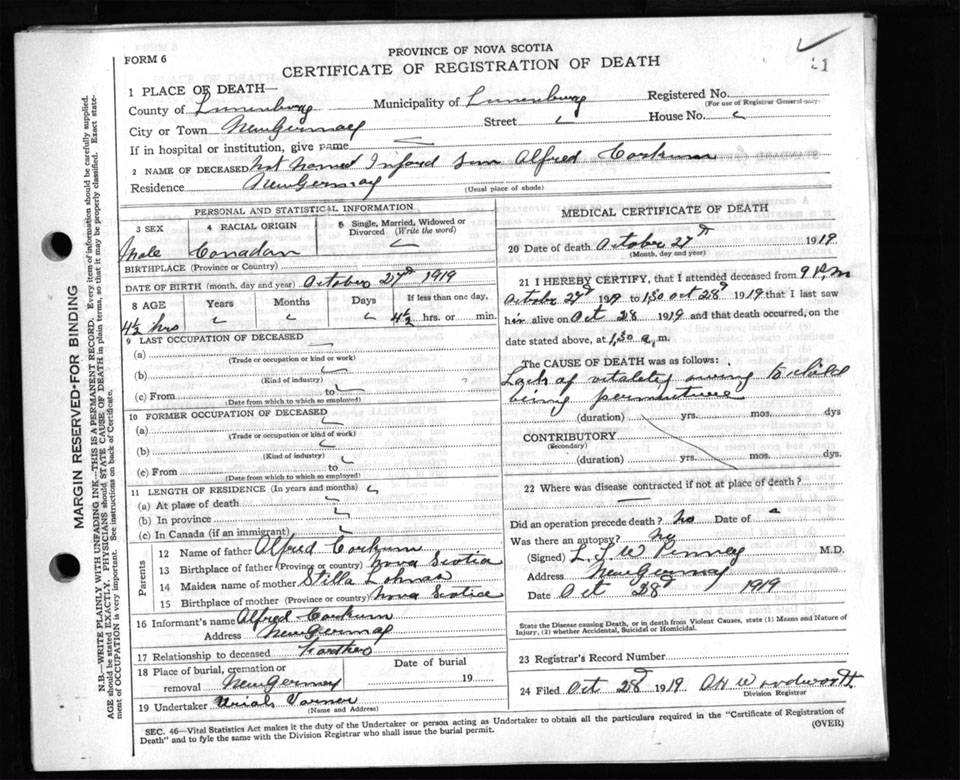 FORM 6
PROVINCE OF NOVA SCOTIA
CERTIFICATE OF REGISTRATION OF DEATH
1 PLACE OF DEATH—
County of Lunenburg Municipality of Lunenburg Registered No.
(For use of Registrar General only)
City or Town New Germany Street House No.
If in hospital or institution, give name
2 NAME OF DECEASED Not Named Infant Son Alfred Corkum
Residence New Germany
(Usual place of abode)
PERSONAL AND STATISTICAL INFORMATION
3 SEX 4 RACIAL ORIGIN 5 Single, Married, Widowed or Divorced (Write the word)
Male Canadian
BIRTHPLACE (Province or Country)
DATE OF BIRTH (month, day and year) October 27d 1919
8 AGE Years Months Days If less than one day,
4½ hrs 4½ hrs. or min.
9 LAST OCCUPATION OF DECEASED
(a)
(Trade or occupation or kind or work)
(b)
(Kind of industry)
(c) From to
(Date from which to which so employed)
10 FORMER OCCUPATION OF DECEASED
(a)
(Trade or occupation or kind of work)
(b)
(Kind of industry)
(c) From to
(Date from which to which so employed)
11 LENGTH OF RESIDENCE (In years and months)
(a) At place of death
(b) In province
(c) In Canada (if an immigrant)
Parents
12 Name of father Alfred Corkum
13 Birthplace of father (Province or country) Nova Scotia
14 Maiden name of mother Stilla
15 Birthplace of mother (Province or country) Nova Scotia
16 Informant's name Alfred Corkum
Address New Germany
17 Relationship to deceased
18 Place of burial, cremation or removal New Germany Date of burial 19
19 Undertaker
(Name and Address)
MEDICAL CERTIFICATE OF DEATH
20 Date of death October 27d 1919
(Month, day and year)
21 I HEREBY CERTIFY, that I attended deceased from 9 P.M
October 27d 1919 to 1.30 Oct 28d 1919 that I last saw
him alive on Oct 28 1919 and that death occurred, on the
date stated above, at 1.30 a. m.
The CAUSE OF DEATH was as follows:
Lack of vitality owing to child
being
(duration) yrs. mos. dys
CONTRIBUTORY
(Secondary)
(duration) yrs. mos. dys.
22 Where was disease contracted if not at place of death?
Did an operation precede death? No Date of
Was there an autopsy? No
(Signed) L. S. W Penney M.D.
Address New Germany
Date Oct 28d 1919
State the Disease causing Death, or in death from Violent Causes, state (1) Means and Nature of
Injury, (2) whether Accidental, Suicidal or Homicidal.
23 Registrar's Record Number
24 Filed Oct 28d 1919 Woodworth
Division Registrar
SEC. 46—Vital Statistics Act makes it the duty of the Undertaker or person acting as Undertaker to obtain all the particulars required in the "Certificate of Registration of
Death" and to fyle the same with the Division Registrar who shall issue the burial permit.
(OVER)
MARGIN RESERVED FOR BINDING
N.B.—WRITE PLAINLY WITH UNFADING INK—THIS IS A PERMANENT RECORD. Every item of information should be carefully supplied.
AGE should be stated EXACTLY. PHYSICIANS should STATE CAUSE OF DEATH in plain terms, so that it may be properly classified. Exact state-
ment of OCCUPATION is very important. See instructions on back of Certificate.